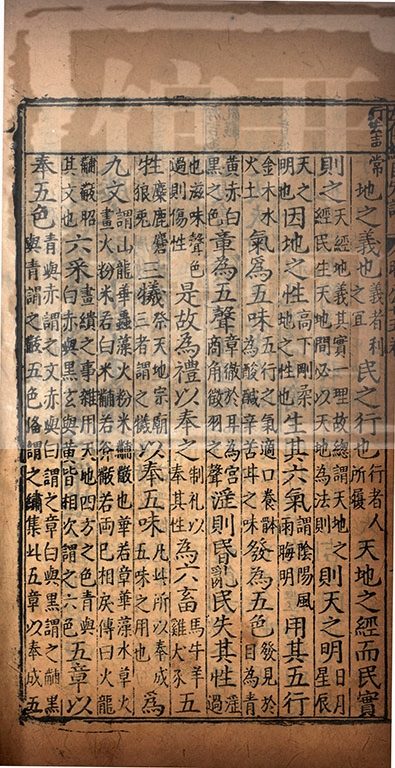 常地之義也義者利之宜民之行也行者人所履天地之經而民實
則之天經地義其實一理故總謂天地之經民生天地間必以天地為法則則天之明日月星辰
天之明也因地之性高下剛柔地之性也生其六氣謂陰陽風雨晦明用其五行
金木水火土氣為五味五行之氣適口養骵為酸鹹辛苦甘之味發為五色發見於目為青
黃赤白章為五聲章徹於耳為宮商角徵羽之聲淫則昏亂民失其性淫過
也滋味聲色過則傷性是故為禮以奉之制礼以奉其性為六畜馬牛羊雞犬豕五
牲麋鹿麏狼兎三犧祭天地宗廟三者謂之犧以奉五味凡此所以奉成五味之用也為
九文謂山龍華蟲藻火粉米黼黻也華若草華藻水草火畫火粉米若白米黼若斧黻若両巳相戾傳曰火龍
黼黻昭其文也六采畫繢之事雜用天地四方之色青與白赤與黑玄與黃皆相次謂之六色五章以
奉五色青與赤謂之文赤與白謂之章白與黑謂之黼黑與青謂之黻五色俻謂之繡集此五章以奉成五